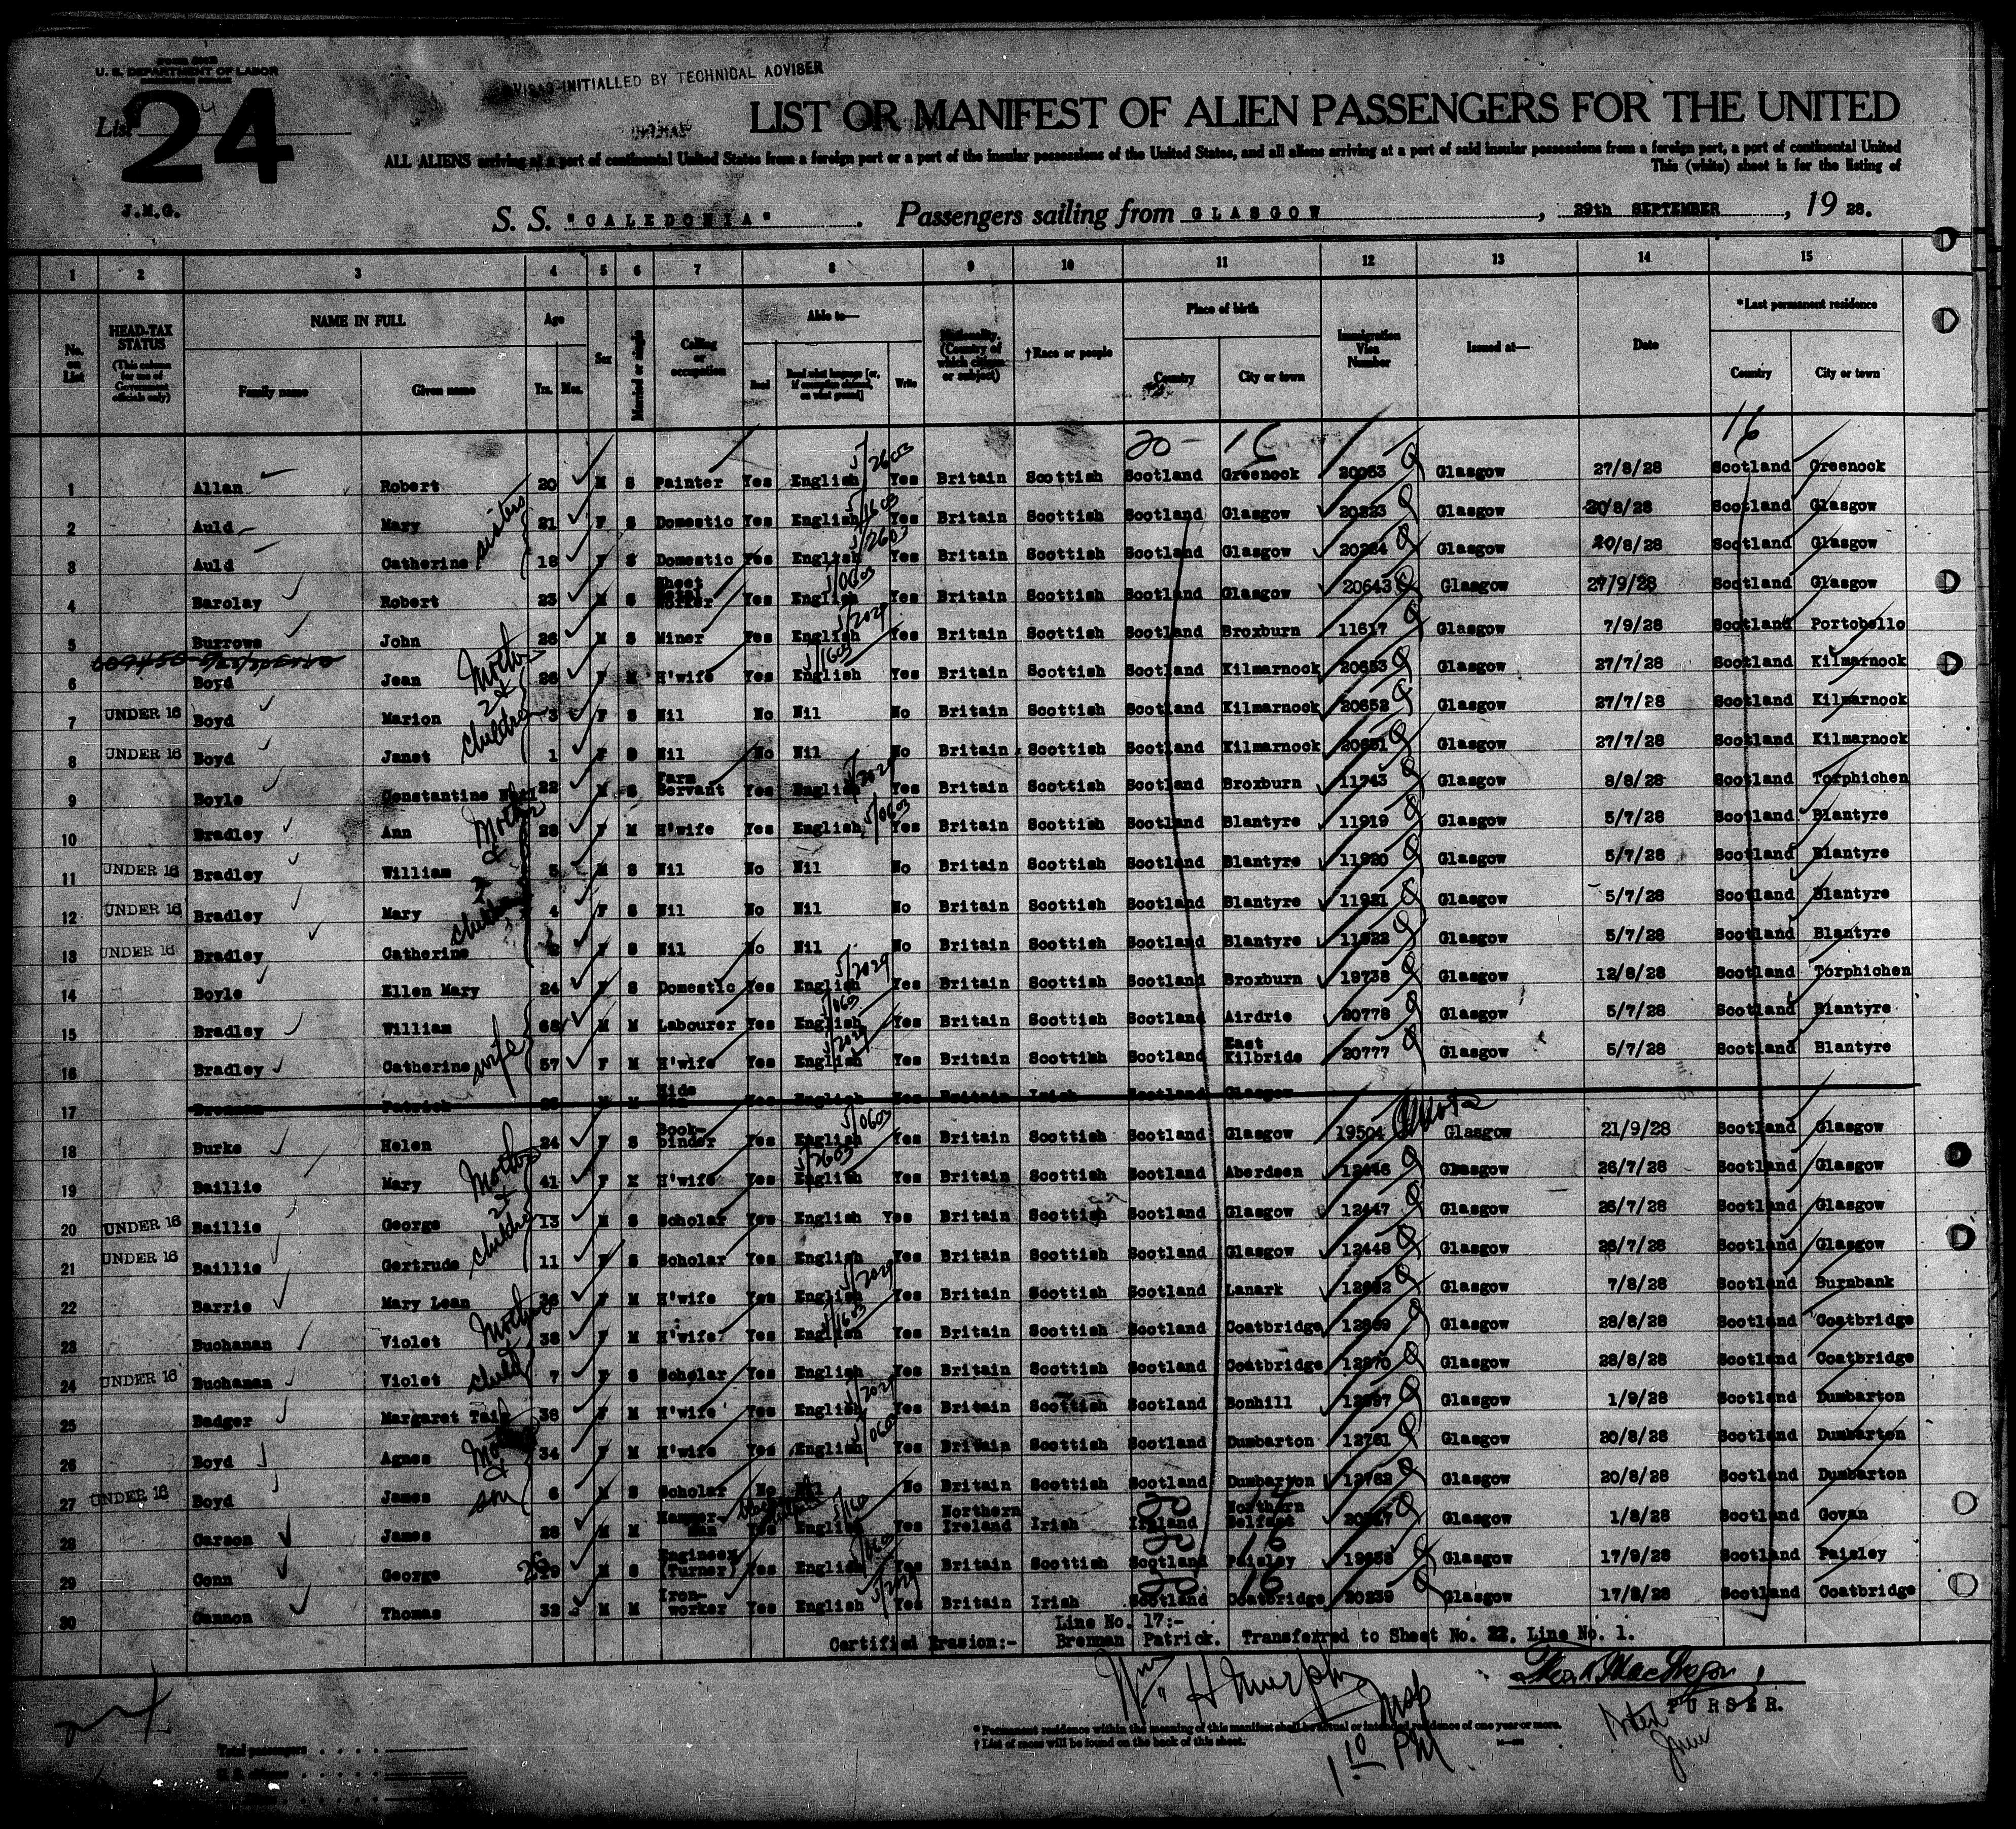 U. S. DEPARTMENT OF LABOR
VISAS INITIALLED BY TECHNICAL ADVISER
List 24
LIST OR MANIFEST OF ALIEN PASSENGERS FOR THE UNITED
ALL ALIENS arriving at a port of continental United States from a foreign port or a port of the insular possessions of the United States, and all aliens arriving at a port of said insular possessions from a foreign port, a port of continental United
This (white) sheet is for the listing of
J.M.G.
S. S. "CALEDONIA". Passengers sailing from GLASGOW, 29th SEPTEMBER, 19 28.
1 2 3 4 5 6 7 8 9 10 11 12 13 14 15
No. on List
HEAD-TAX STATUS (This column for use of Government officials only)
NAME IN FULL Family name Given name
Age Yrs. Mos.
Sex
Married or single
Calling or occupation
Able to— Read Read what language [or, if exemption claimed, on what ground] Write
Nationality. (Country of which citizen or subject)
†Race or people
Place of birth Country City or town
Immigration Visa Number
Issued at—
Date
*Last permanent residence Country City or town
20 - 16 16
1 Allan Robert 20 M S Painter Yes English Yes Britain Scottish Scotland Greenock 20063 Glasgow 27/8/28 Scotland Greenock
2 Auld Mary sisters 21 F S Domestic Yes English Yes Britain Scottish Scotland Glasgow Glasgow 20/8/28 Scotland Glasgow
3 Auld Catherine 18 F S Domestic Yes English Yes Britain Scottish Scotland Glasgow Glasgow 20/8/28 Scotland Glasgow
4 Barclay Robert 23 M S Sheet Metal Worker Yes English Yes Britain Scottish Scotland Glasgow 20643 Glasgow 27/9/28 Scotland Glasgow
5 Burrows John 26 M S Miner Yes English Yes Britain Scottish Scotland Broxburn 11617 Glasgow 7/9/28 Scotland Portobello
6 Boyd Jean Mother & 2 children 26 F M H'wife Yes English Yes Britain Scottish Scotland Kilmarnock 20653 Glasgow 27/7/28 Scotland Kilmarnock
7 UNDER 16 Boyd Marion 3 F S Nil No Nil No Britain Scottish Scotland Kilmarnock 20652 Glasgow 27/7/28 Scotland Kilmarnock
8 UNDER 16 Boyd Janet 1 F S Nil No Nil No Britain Scottish Scotland Kilmarnock 20651 Glasgow 27/7/28 Scotland Kilmarnock
9 Boyle Constantine 22 M S Farm Servant Yes English Yes Britain Scottish Scotland Broxburn 11743 Glasgow 8/8/28 Scotland Torphichen
10 Bradley Ann Mother & 3 children 28 F M H'wife Yes English Yes Britain Scottish Scotland Blantyre 11919 Glasgow 5/7/28 Scotland Blantyre
11 UNDER 16 Bradley William 5 M S Nil No Nil No Britain Scottish Scotland Blantyre 11920 Glasgow 5/7/28 Scotland Blantyre
12 UNDER 16 Bradley Mary 4 F S Nil No Nil No Britain Scottish Scotland Blantyre 11921 Glasgow 5/7/28 Scotland Blantyre
13 UNDER 16 Bradley Catherine F S Nil No Nil No Britain Scottish Scotland Blantyre 11922 Glasgow 5/7/28 Scotland Blantyre
14 Boyle Ellen Mary 24 F S Domestic Yes English Yes Britain Scottish Scotland Broxburn 19738 Glasgow 12/8/28 Scotland Torphichen
15 Bradley William 68 M M Labourer Yes English Yes Britain Scottish Scotland Airdrie 20778 Glasgow 5/7/28 Scotland Blantyre
16 Bradley Catherine wife 57 F M H'wife Yes English Yes Britain Scottish Scotland East Kilbride 20777 Glasgow 5/7/28 Scotland Blantyre
17 Brennan Patrick M M Yes English Yes Britain Irish Scotland Glasgow
18 Burke Helen 24 F S Book-binder Yes English Yes Britain Scottish Scotland Glasgow 19504 Quota Glasgow 21/9/28 Scotland Glasgow
19 Baillie Mary Mother & 2 children 41 F M H'wife Yes English Yes Britain Scottish Scotland Aberdeen 12446 Glasgow 26/7/28 Scotland Glasgow
20 UNDER 16 Baillie George 13 M S Scholar Yes English Yes Britain Scottish Scotland Glasgow 12447 Glasgow 26/7/28 Scotland Glasgow
21 UNDER 16 Baillie Gertrude 11 F S Scholar Yes English Yes Britain Scottish Scotland Glasgow 12448 Glasgow 26/7/28 Scotland Glasgow
22 Barrie Mary Lean 36 F M H'wife Yes English Yes Britain Scottish Scotland Lanark Glasgow 7/8/28 Scotland Burnbank
23 Buchanan Violet Mother child 38 F M H'wife Yes English Yes Britain Scottish Scotland Coatbridge 12969 Glasgow 28/8/28 Scotland Coatbridge
24 UNDER 16 Buchanan Violet 7 F S Scholar Yes English Yes Britain Scottish Scotland Coatbridge 12970 Glasgow 28/8/28 Scotland Coatbridge
25 Badger Margaret Tait 38 F M H'wife Yes English Yes Britain Scottish Scotland Bonhill Glasgow 1/9/28 Scotland Dumbarton
26 Boyd Agnes Mother & son 34 F M H'wife Yes English Yes Britain Scottish Scotland Dumbarton 12761 Glasgow 20/8/28 Scotland Dumbarton
27 UNDER 16 Boyd James 6 M S Scholar No Nil No Britain Scottish Scotland Dumbarton 12762 Glasgow 20/8/28 Scotland Dumbarton
28 Carson James 28 M M Hammer-man Yes English Yes Northern Ireland Irish Ireland Northern Belfast Glasgow 1/8/28 Scotland Govan
29 Conn George M S Engineer (Turner) Yes English Yes Britain Scottish Scotland Paisley 19658 Glasgow 17/9/28 Scotland Paisley
30 Cannon Thomas 32 M M Iron-worker Yes English Yes Britain Irish Scotland Coatbridge 20239 Glasgow 17/8/28 Scotland Coatbridge
Line No. 17:-
Certified Erasion:- Brennan Patrick. Transferred to Sheet No. 22, Line No. 1.
Wm H Murphy
PURSER.
1 10 PM
* Permanent residence within the meaning of this manifest shall be actual or intended residence of one year or more.
† List of races will be found on the back of this sheet.
Total passengers